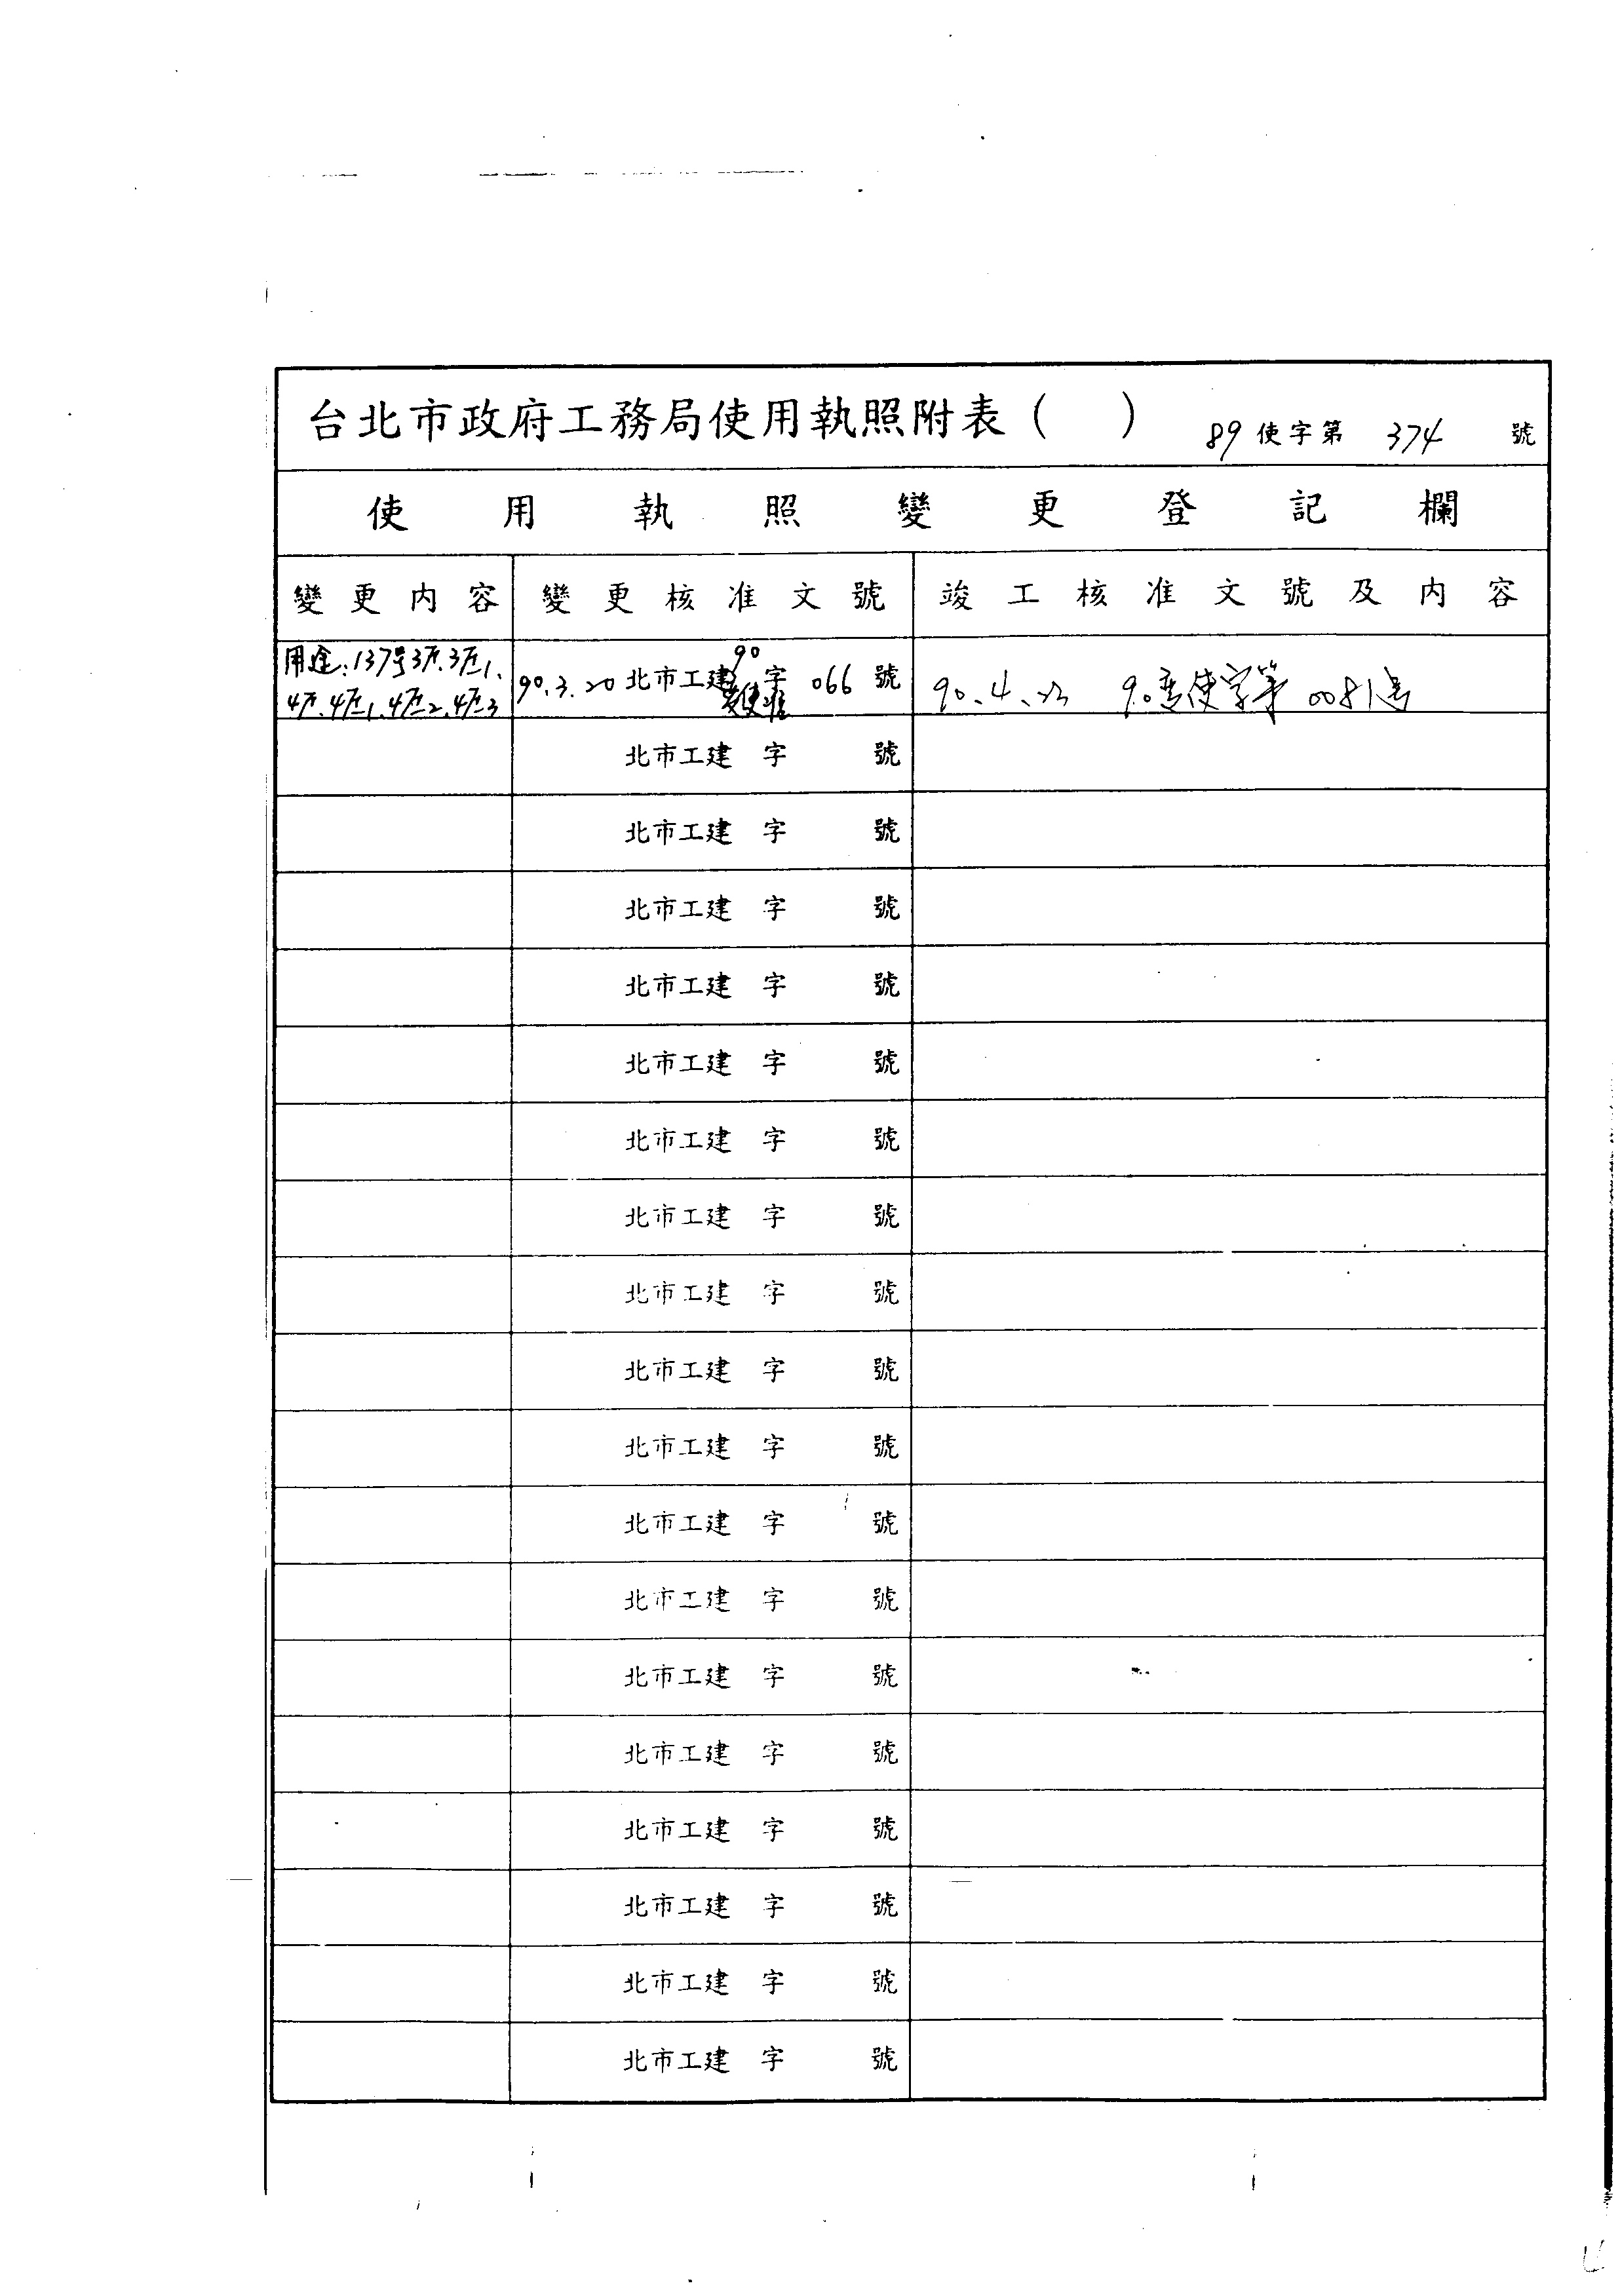 台北市政府工務局使用執照附表（ ） 89使字第 374 號
使用執照變更登記欄
變更內容 變更核准文號 竣工核准文號及內容
用途:137号3F.3F-1.
4F.4F-1.4F-2.4F-3
90
90.3.20 北市工建 字 066 號
變使准
90.4.23 90變使字第0081号
北市工建 字 號
北市工建 字 號
北市工建 字 號
北市工建 字 號
北市工建 字 號
北市工建 字 號
北市工建 字 號
北市工建 字 號
北市工建 字 號
北市工建 字 號
北市工建 字 號
北市工建 字 號
北市工建 字 號
北市工建 字 號
北市工建 字 號
北市工建 字 號
北市工建 字 號
北市工建 字 號